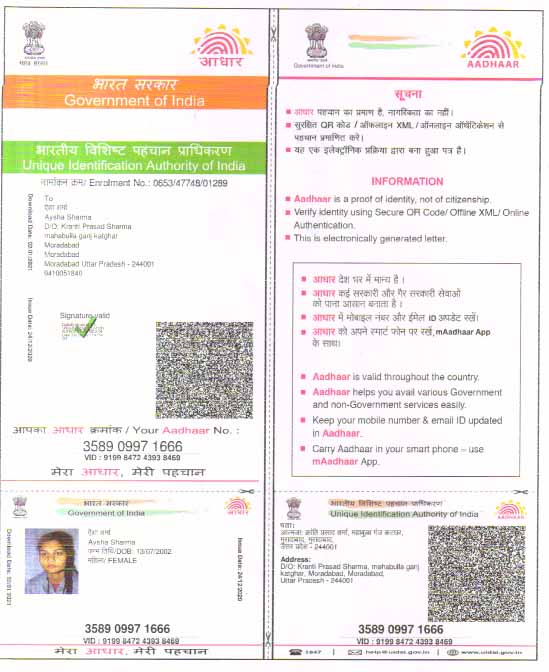 भारत सरकार
Government of India
आधार
भारत सरकार
Government of India
भारतीय विशिष्ट पहचान प्राधिकरण
Unique Identification Authority of India
नामांकन क्रम/ Enrolment No.: 0653/47748/01289
Download Date: 02/01/2021
To
ऐशा शर्मा
Aysha Sharma
D/O: Kranti Prasad Sharma
mahabulla ganj katghar
Moradabad
Moradabad
Moradabad Uttar Pradesh - 244001
9410051840
Issue Date: 24/12/2020
Signature valid
आपका आधार क्रमांक / Your Aadhaar No. :
3589 0997 1666
VID : 9199 8472 4393 8469
मेरा आधार, मेरी पहचान
Government of India
AADHAAR
सूचना
आधार पहचान का प्रमाण है, नागरिकता का नहीं।
सुरक्षित QR कोड / ऑफलाइन XML / ऑनलाइन ऑथेंटिकेशन से
पहचान प्रमाणित करें।
यह एक इलेक्ट्रॉनिक प्रक्रिया द्वारा बना हुआ पत्र है।
INFORMATION
Aadhaar is a proof of identity, not of citizenship.
Verify identity using Secure QR Code/ Offline XML/ Online
Authentication.
This is electronically generated letter.
आधार देश भर में मान्य है।
आधार कई सरकारी और गैर सरकारी सेवाओं
को पाना आसान बनाता है।
आधार में मोबाइल नंबर और ईमेल ID अपडेट रखें।
आधार को अपने स्मार्ट फोन पर रखें, mAadhaar App
के साथ।
Aadhaar is valid throughout the country.
Aadhaar helps you avail various Government
and non-Government services easily.
Keep your mobile number & email ID updated
in Aadhaar.
Carry Aadhaar in your smart phone – use
mAadhaar App.
भारत सरकार
Government of India
आधार
Download Date: 02/01/2021
ऐशा शर्मा
Aysha Sharma
जन्म तिथि/DOB: 13/07/2002
महिला/ FEMALE
Issue Date: 24/12/2020
3589 0997 1666
VID : 9199 8472 4393 8469
मेरा आधार, मेरी पहचान
भारतीय विशिष्ट पहचान प्राधिकरण
Unique Identification Authority of India
AADHAAR
पता:
आत्मजा: क्रांति प्रसाद शर्मा, महाबुल्ला गंज कटघर,
मुरादाबाद, मुरादाबाद,
उत्तर प्रदेश - 244001
Address:
D/O: Kranti Prasad Sharma, mahabulla ganj
katghar, Moradabad, Moradabad,
Uttar Pradesh - 244001
3589 0997 1666
VID : 9199 8472 4393 8469
1947 | help@uidai.gov.in | www.uidai.gov.in